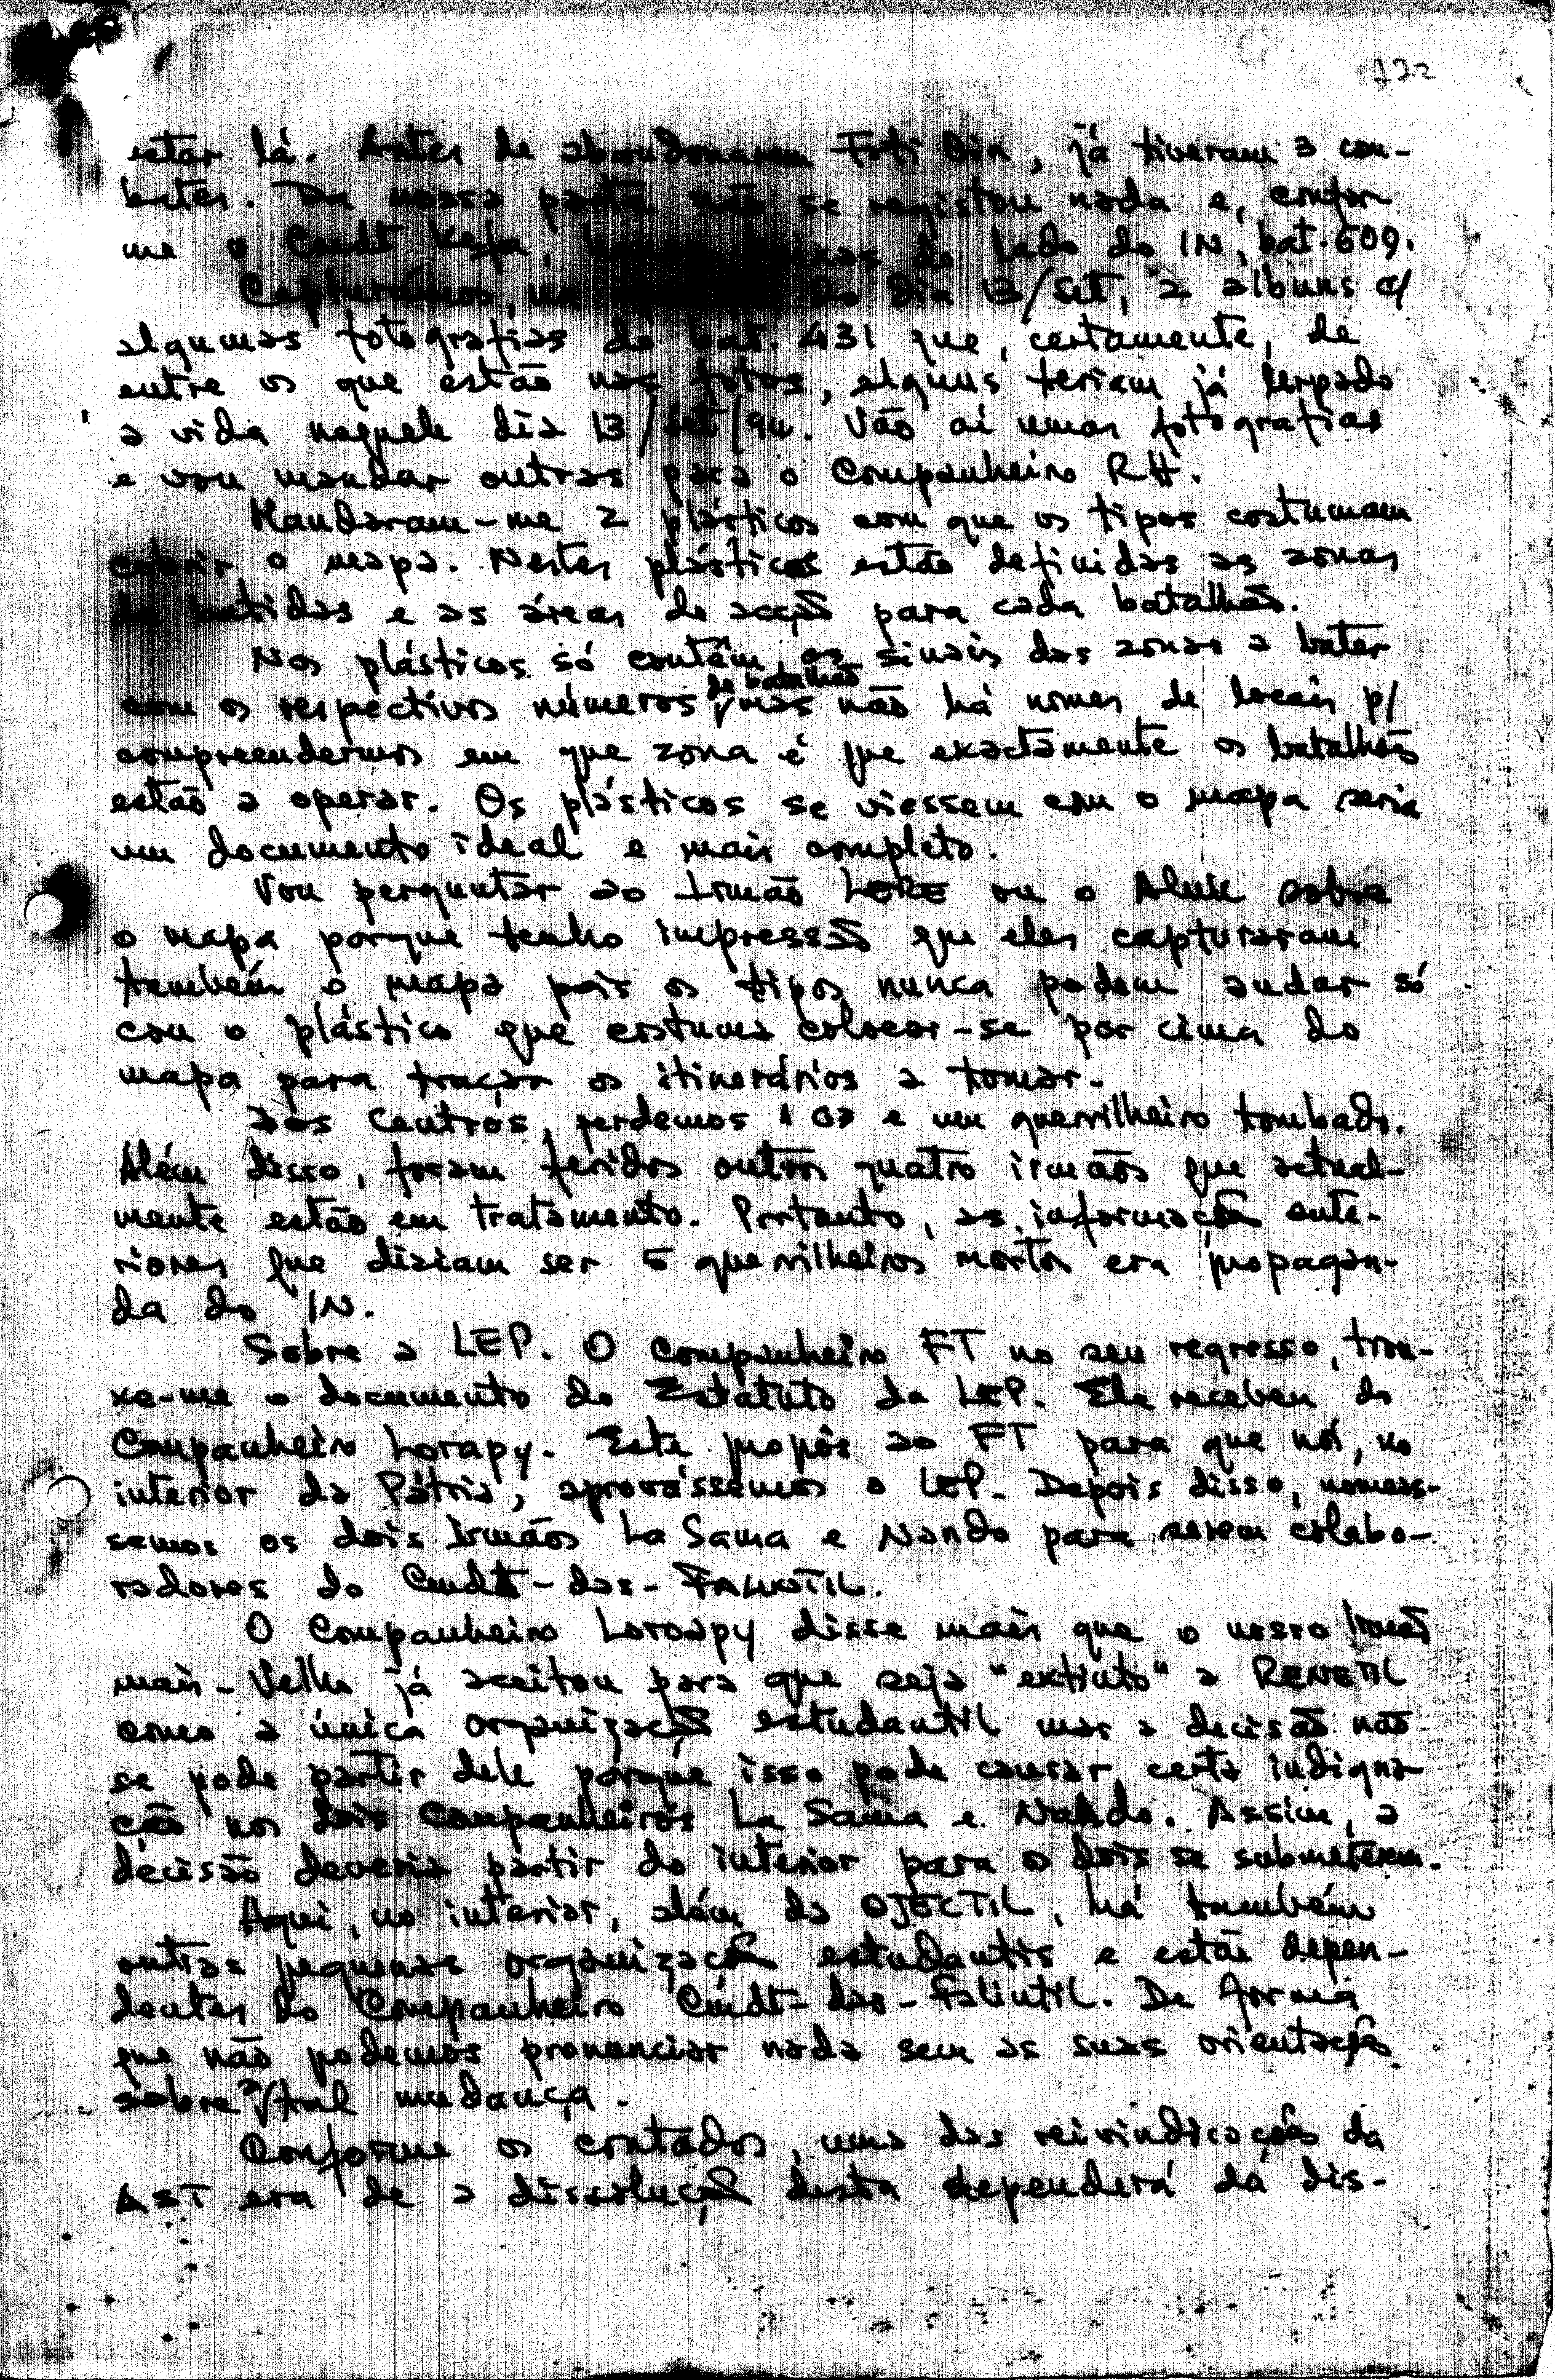 122
estar lá. Antes de abandonarem Foti Oin, já tiveram 3 com-
bates. Da nossa parte não se registou nada e, confor
me o Cmdt Kefa, baixas do lado do IN, bat. 609.
Capturámos, na do dia 13/set, 2 álbuns c/
algumas fotografias do bat. 431 que, certamente, de
entre os que estão nas fotos, alguns teriam já lerpado
a vida naquele dia 13/set/94. Vão aí umas fotografias
e vou mandar outras para o Companheiro RH.
Mandaram-me 2 plásticos com que os tipos costumam
cobrir o mapa. Nestes plásticos estão definidas as zonas
de batidas e as áreas de acção para cada batalhão.
Nos plásticos só contêm os sinais das zonas a bater
de batalhão
com os respectivos números, mas não há nomes de locais p/
compreendermos em que zona é que exactamente os batalhões
estão a operar. Os plásticos se viessem com o mapa seria
um documento ideal e mais completo.
Vou perguntar ao Irmão LERE ou o Aluk sobre
o mapa porque tenho impressão que eles capturaram
também o mapa pois os tipos nunca podem andar só
com o plástico que costuma colocar-se por cima do
mapa para traçar os itinerários a tomar.
Nós perdemos 1 e um guerrilheiro tombado.
Além disso, foram feridos outros quatro irmãos que actual-
mente estão em tratamento. Portanto, as informações ante-
riores que diziam ser 5 guerrilheiros mortos era propagan-
da do IN.
Sobre a LEP. O Companheiro FT no seu regresso, trou-
xe-me o documento do Estatuto da LEP. Ele recebeu do
Companheiro Lorapy. Este propôs ao FT para que nós, no
interior da Pátria, aprovássemos o LEP. Depois disso, nomeás-
semos os dois Irmãos La Sama e Nando para serem colabo-
radores do Cmdt-das-FALINTIL.
O Companheiro Loroapy disse mais que o nosso Irmão
mais-Velho já aceitou para que seja "extinto" a RENETIL
como a única organização estudantil mas a decisão não
se pode partir dele porque isso pode causar certa indigna
ção nos dois Companheiros La Sama e Nando. Assim, a
decisão deveria partir do interior para os dois se submeterem.
Aqui, no interior, além da OJECTIL, há também
outras pequenas organizações estudantis e estão depen-
dentes do Companheiro Cmdt-das-Falintil. De forma
que não podemos pronunciar nada sem as suas orientações
sobre a tal mudança.
Conforme os contados, uma das reivindicações da
AST era de a dissolução desta dependerá da dis-